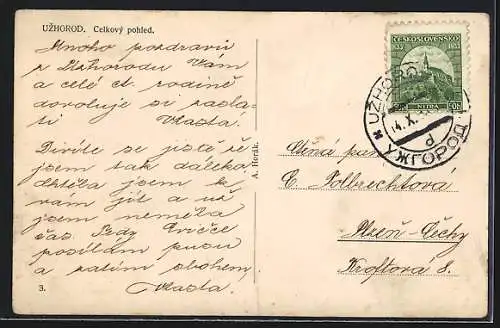 UŽHOROD. Celkový pohled.
Mnoho pozdravů
z Užhorodu Vám
a celé ct. rodině
dovoluje si zaslati
Vlasta.
Divíte se jistě že
jsem tak daleko
chtěla jsem k
vám jít a už
jsem neměla
čas. Tedy
posílám pusu
a zatím sbohem,
Vlasta.
3.
A. Horák.
ČESKOSLOVENSKO
833 1933
NITRA
50h
UŽHOROD
УЖГОРОД
14.X.
d
Ctěná paní
C. Folbrechtová
Plzeň-Čechy
Kroftova 8.